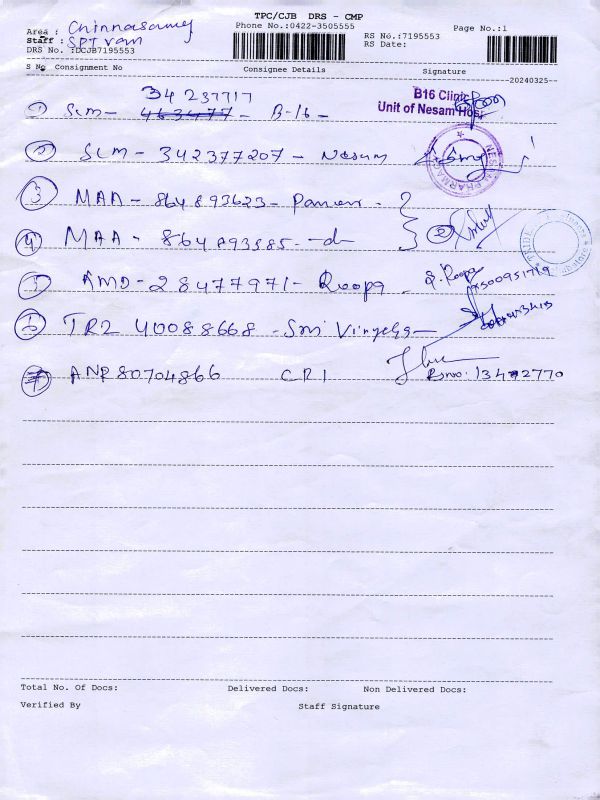 TPC/CJB DRS - CMP
Phone No.:0422-3505555
Page No.:1
Area : Chinnasamy
Staff : SPT van
DRS No. :DCJB7195553
RS No.:7195553
RS Date:
S No Consignment No Consignee Details Signature
20240325
34 237717
1 SLM - 463477 - B-16 -
B16 Clinic
Unit of Nesam
2 SLM - 342377207 - Nesam
3 MAA - 864893623 -
4 MAA - 864893585 - do
2
5 AMD - 28477971 - Roopa
S. Roopa
6 TRZ 40088668 - Sri
7 ANP 80704866 CRI
13472770
Total No. Of Docs: Delivered Docs: Non Delivered Docs:
Verified By Staff Signature